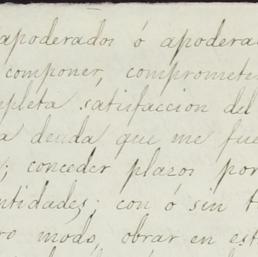 apoderados ó apodera
componer, compromete
pleta satisfaccion del
a deuda que me fue
; conceder plazos por
ntidades; con ó sin
ro modo, obrar en est